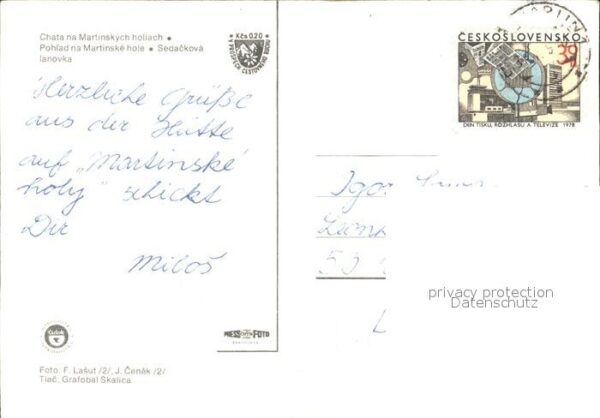 Chata na Martinských holiach •
Pohľad na Martinské hole • Sedačková
lanovka
Kčs 0,20
V PROSPECH CESTOVNÉHO RUCHU
ČESKOSLOVENSKO
DEN TISKU, ROZHLASU A TELEVIZE 1978
Herzliche Grüße
aus der Hütte
auf „Martinské
holy" schickt
Dir
Miloš
Igor
privacy protection
Datenschutz
FOTO
Foto: F. Lašut /2/, J. Čeněk /2/
Tlač: Grafobal Skalica